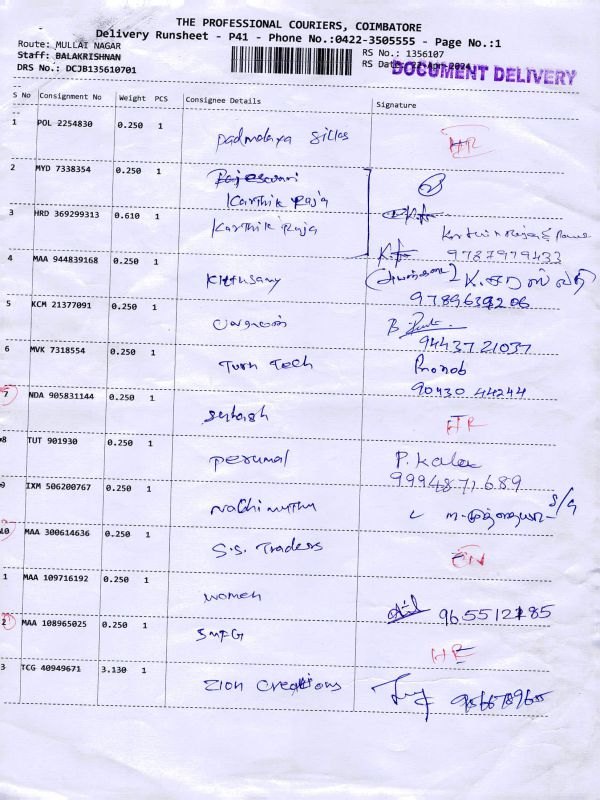 THE PROFESSIONAL COURIERS, COIMBATORE
Delivery Runsheet - P41 - Phone No.:0422-3505555 - Page No.:1
Route: MULLAI NAGAR RS No.: 1356107
Staff: BALAKRISHNAN RS Date: 22-Apr-2024
DRS No.: DCJB135610701 DOCUMENT DELIVERY
S No Consignment No Weight PCS Consignee Details Signature
1 POL 2254830 0.250 1 Padmalaya Silks HR
2 MYD 7338354 0.250 1 Rajeswari
Karthik Raja
3 HRD 369299313 0.610 1 Karthik Raja
9787979433
4 MAA 944839168 0.250 1 Kittusamy
9789639206
5 KCM 21377091 0.250 1 B.
9443721037
6 MVK 7318554 0.250 1 Turn Tech Pronob
90430 44244
7 NDA 905831144 0.250 1 Subash HR
8 TUT 901930 0.250 1 Perumal P. Kala
9994871689
9 IXM 506200767 0.250 1 Nachimuthu
10 MAA 300614636 0.250 1 S.S. Traders
1 MAA 109716192 0.250 1 women 9655127185
2 MAA 108965025 0.250 1 SMFG HR
3 TCG 40949671 3.130 1 Zion Creations